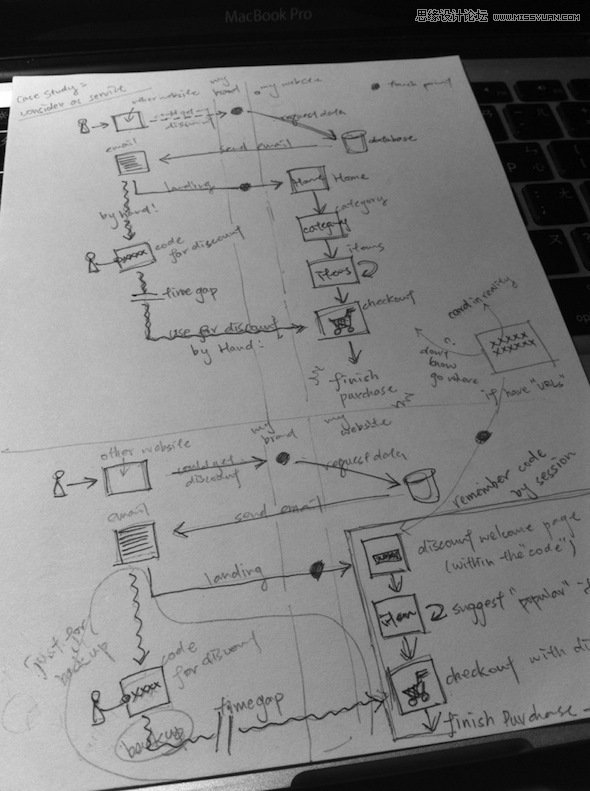 MacBook Pro
思缘设计论坛 WWW.MISSYUAN.COM
Case Study:
consider as service
other website
my brand
my website
touch point
could get my
discount
request data
database
email
send email
landing
Home Home
by hand!
category
category
xxxx
code
for discount
items
items
time gap
checkout
use for discount
by Hand!
finish
purchase
card in reality
xxxxx
xxxxxx
don't
know
go where
if have "URLs"
other website
my brand
my website
could get
discount
request data
remember code
by session
email
send email
landing
discount welcome page
(within the "code")
xxxx
item
suggest "popular"
just for
back up
code
for discount
xxxx
backup
time gap
checkout with
finish purchase